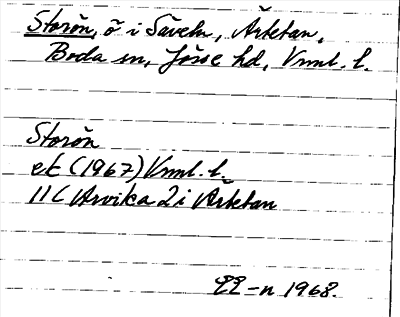 Storön, ö i Säveln, Ärtetan,
Boda sn, Jösse hd, Vrml. l.
Storön
ek (1967) Vrml. l.
11C Arvika 2 i Ärtetan
-n 1968.